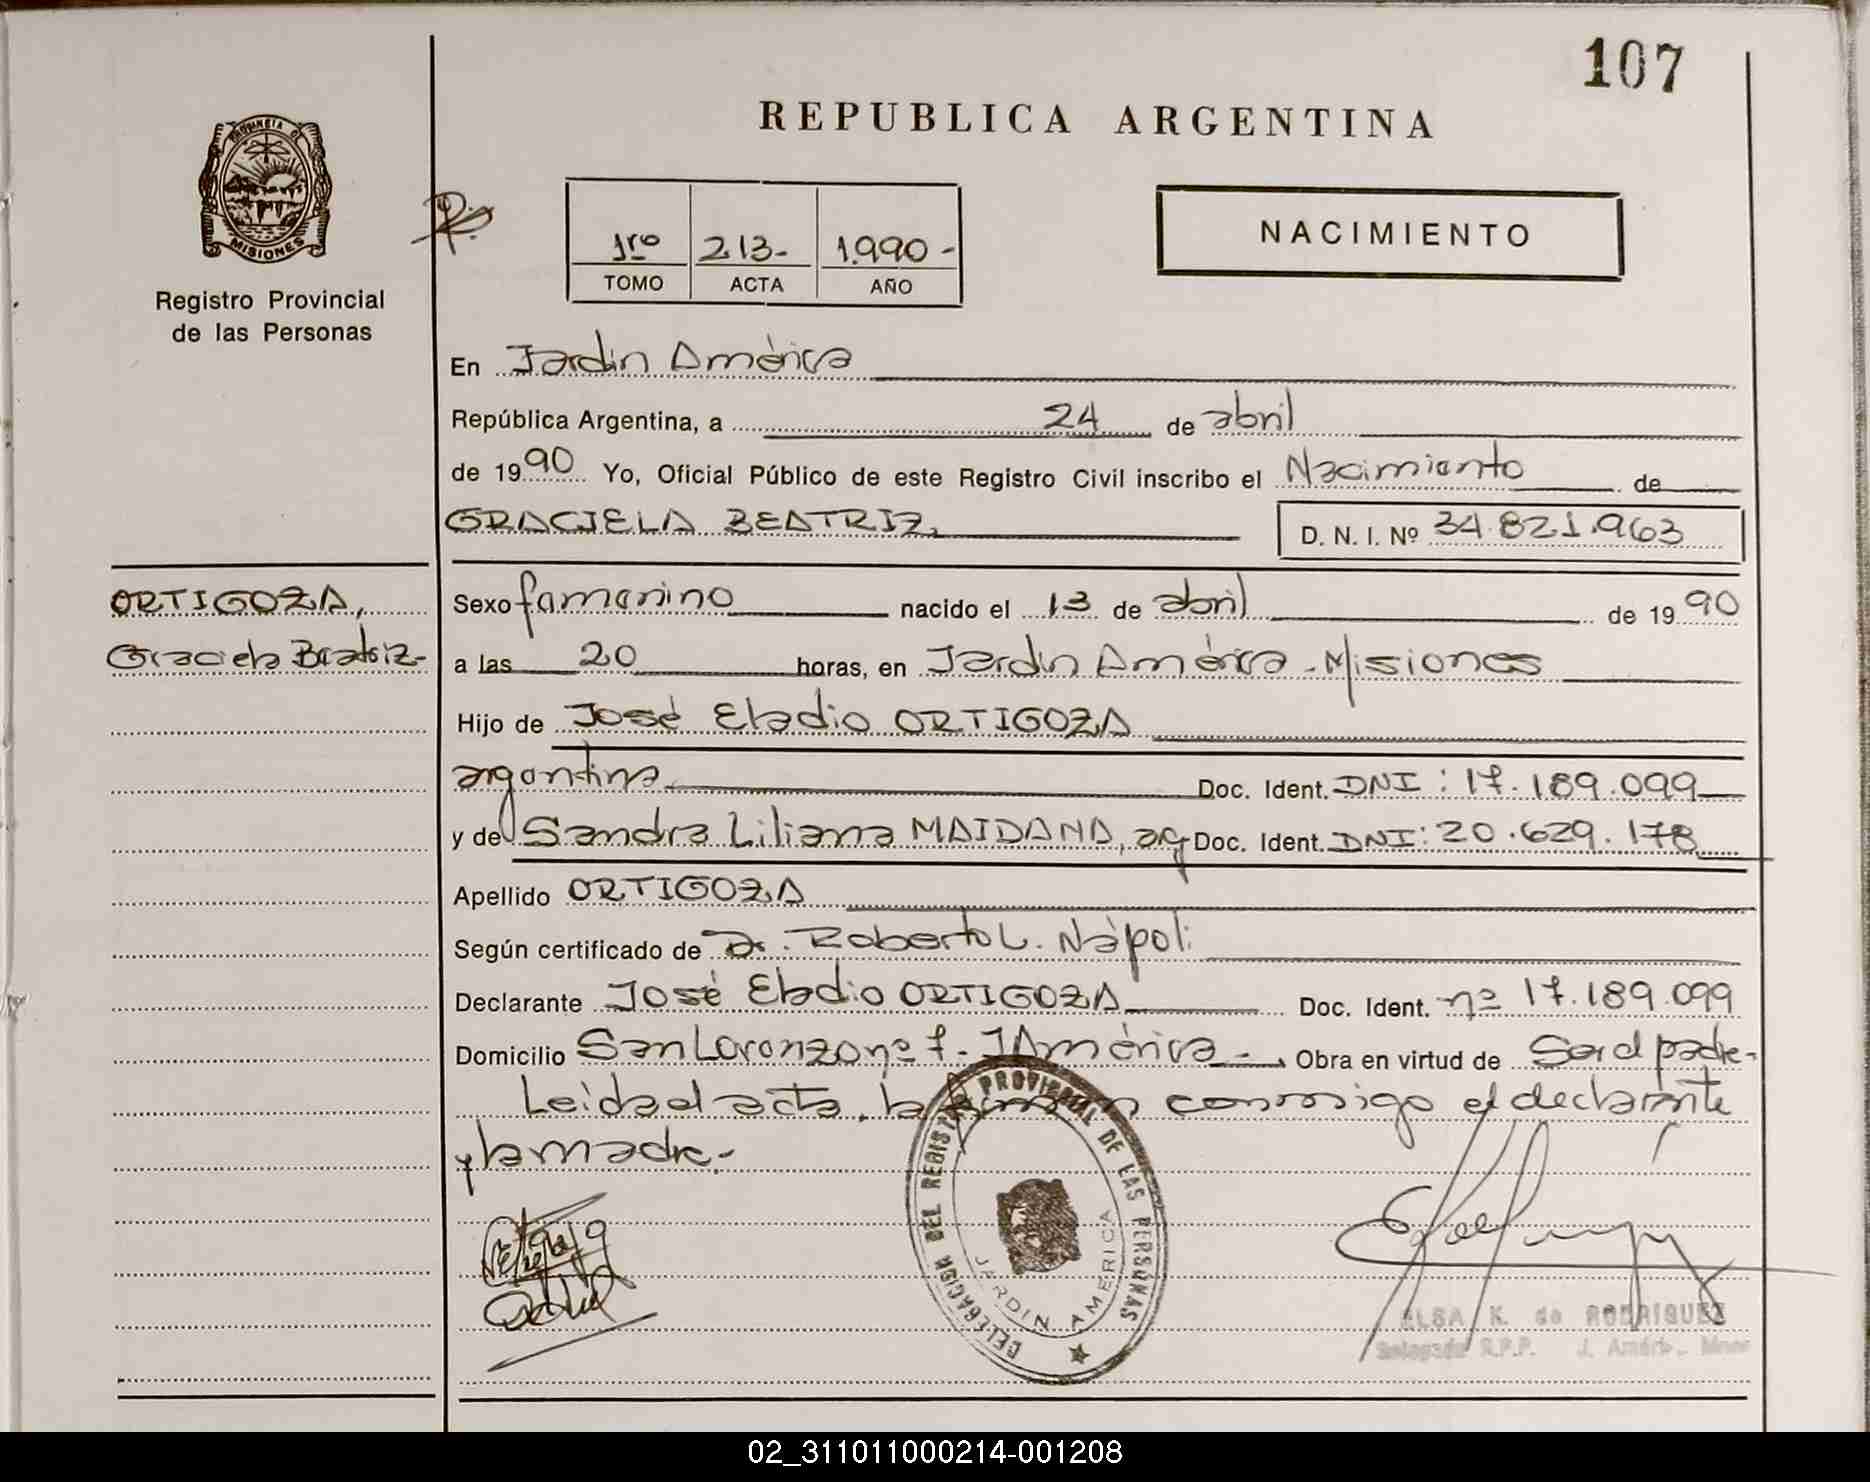 107
REPUBLICA ARGENTINA
PROVINCIA DE
MISIONES
Registro Provincial
de las Personas
1ro 213- 1.990-
TOMO ACTA AÑO
NACIMIENTO
En Jardín América
República Argentina, a 24 de abril
de 1990 Yo, Oficial Público de este Registro Civil inscribo el Nacimiento de
GRACIELA BEATRIZ, D. N. I. Nº 34.821.963
ORTIGOZA,
Graciela Beatriz-
Sexo femenino nacido el 13 de abril de 1990
a las 20 horas, en Jardín América - Misiones
Hijo de José Eladio ORTIGOZA
argentina, Doc. Ident. DNI: 17.189.099
y de Sandra Liliana MAIDANA, arg Doc. Ident. DNI: 20.629.178
Apellido ORTIGOZA
Según certificado de Dr. Roberto L. Nápoli
Declarante José Eladio ORTIGOZA Doc. Ident. nº 17.189.099
Domicilio San Lorenzo nº 7- J América-, Obra en virtud de Ser el padre-
Leida el acta, la firman conmigo el declarante
y la madre.-
DELEGACION DEL REGISTRO PROVINCIAL DE LAS PERSONAS
JARDIN AMERICA
ELSA K. de RODRIGUEZ
Delegada R.P.P. J. Améric. Mnes
02_311011000214-001208